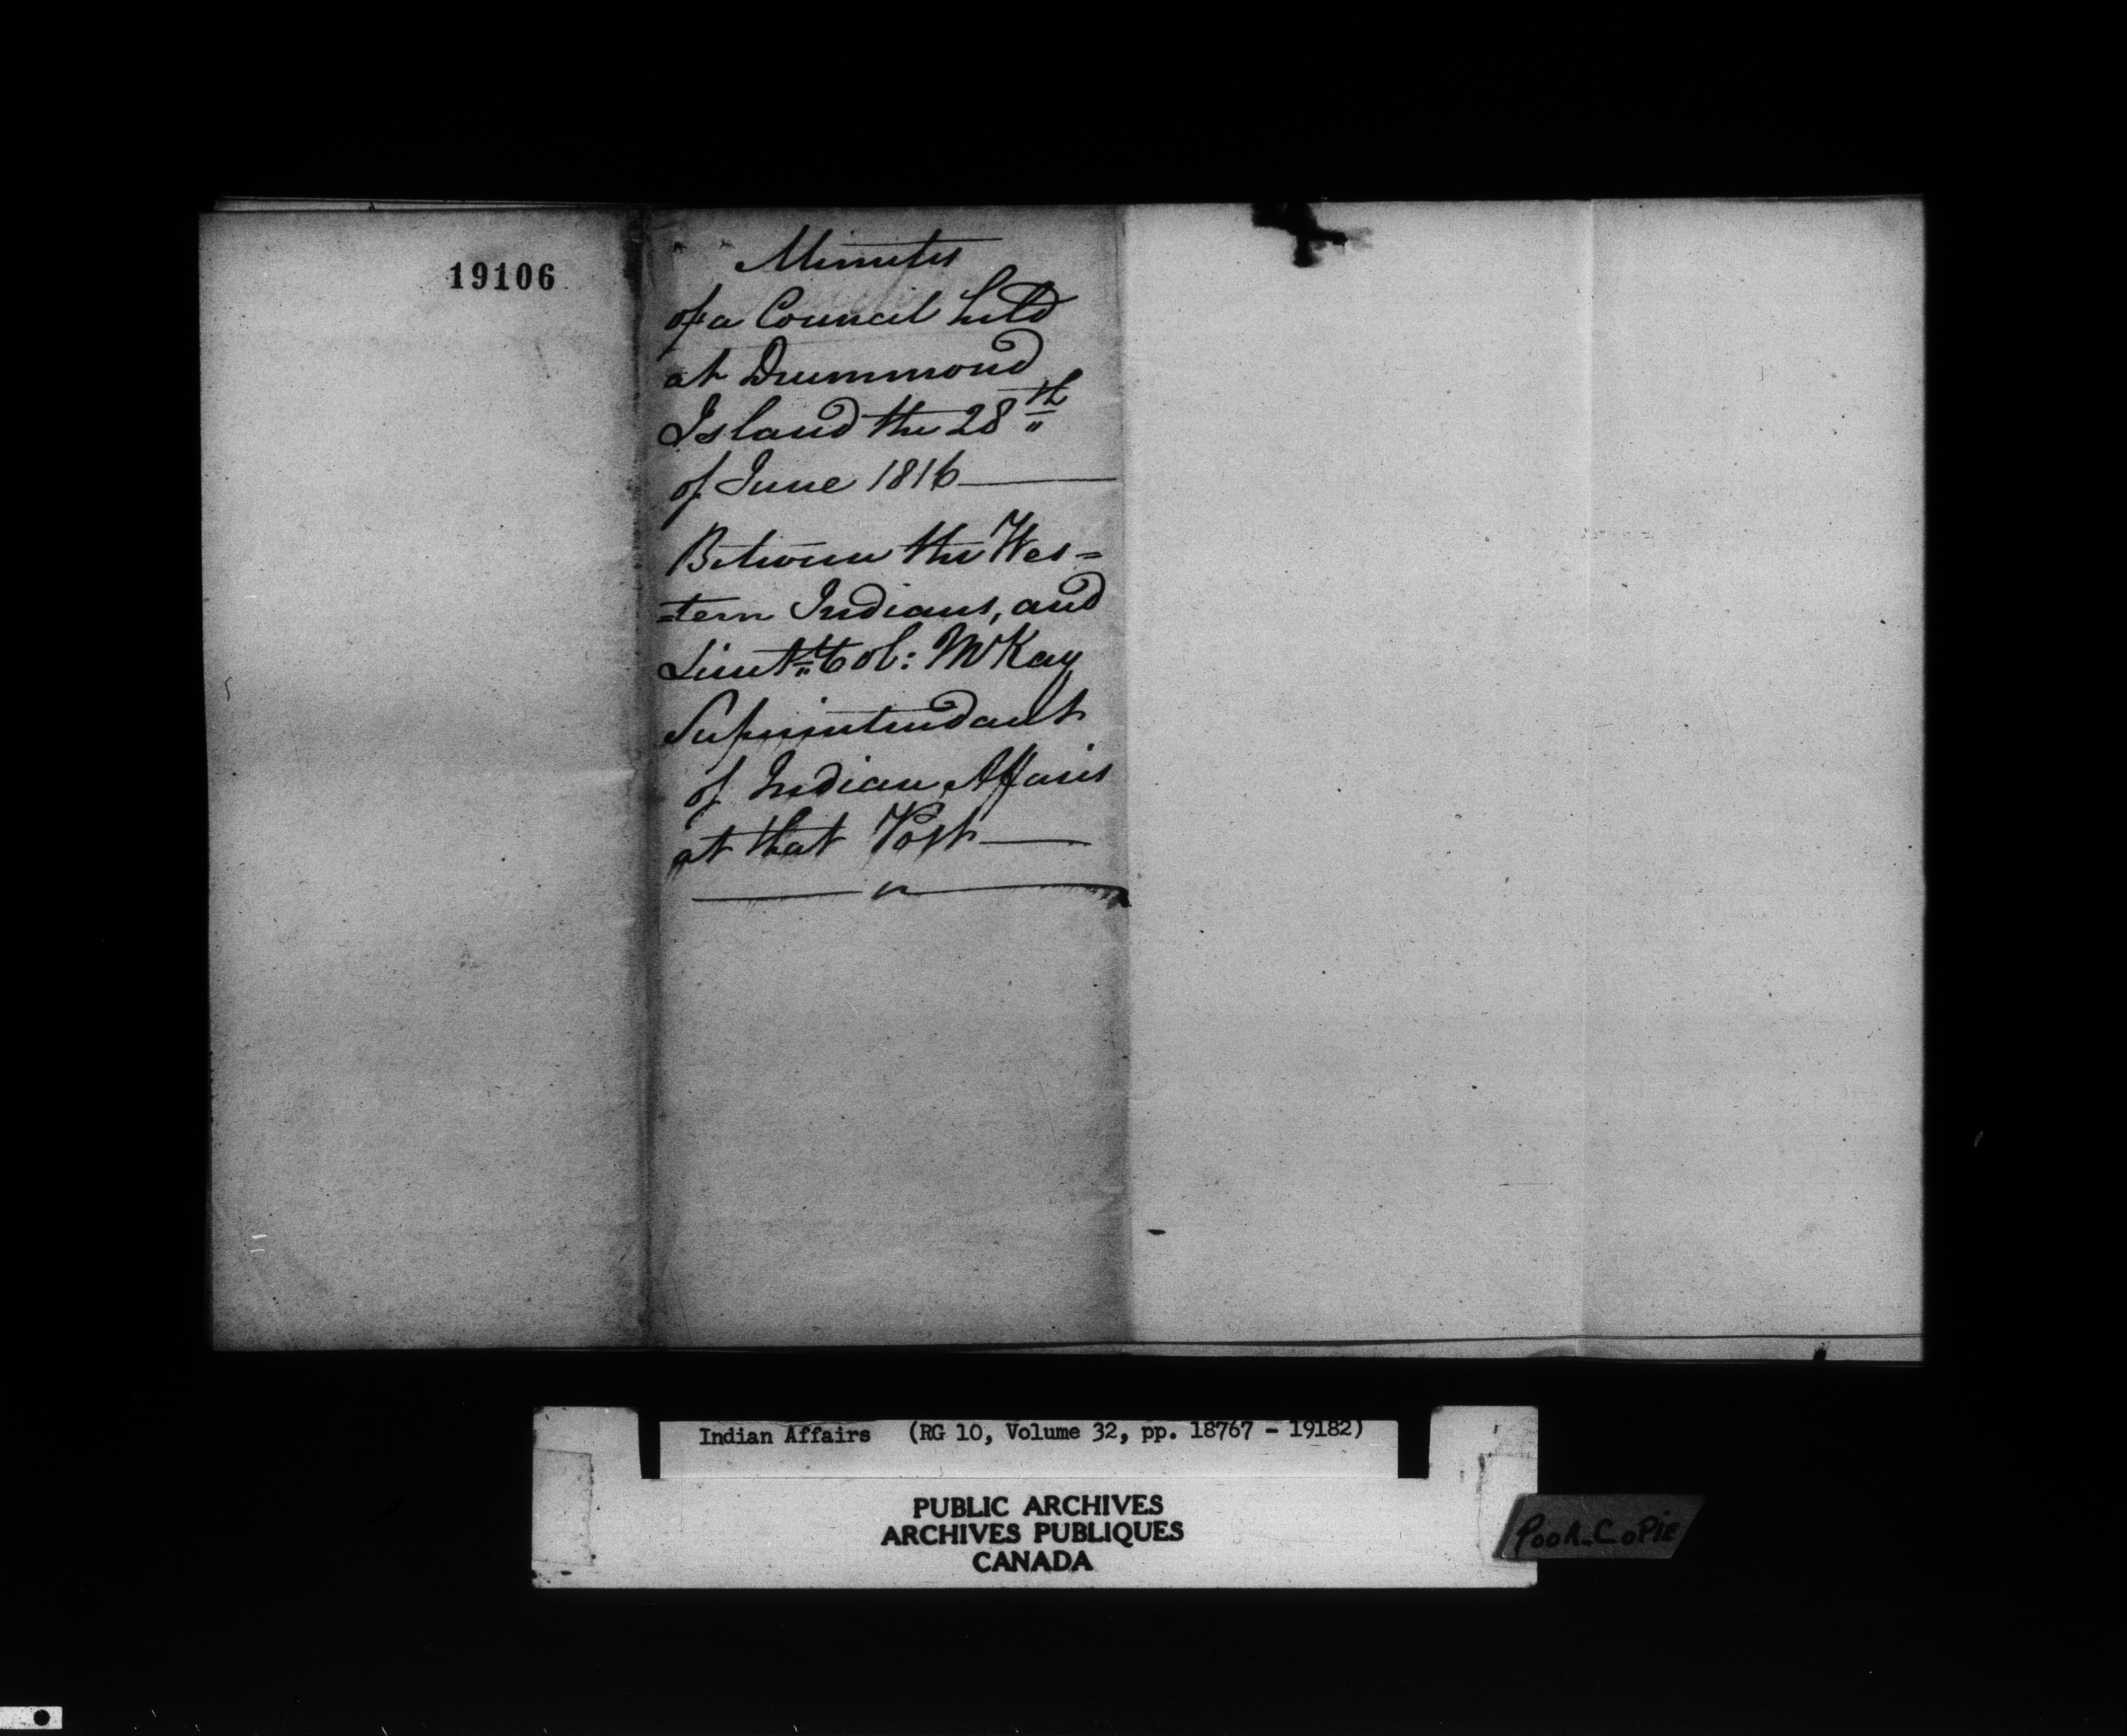 19106
Minutes
of a Council held
at Drummond
Island the 28th
of June 1816
Between the Wes=
=tern Indians, and
Lieut. Col: McKay
Superintendant
of Indian Affairs
at that Post
Indian Affairs (RG 10, Volume 32, pp. 18767 - 19182)
PUBLIC ARCHIVES
ARCHIVES PUBLIQUES
CANADA
POOR-COPIE